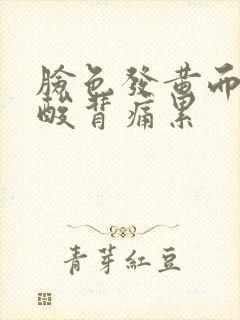 臉色發黃而
酸背痛累
青芽紅豆